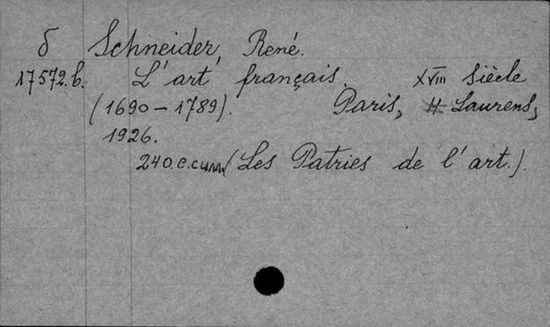 δ Schneider, René.
17572.b. L'art français, XVIII siècle
(1690–1789). Paris, H Laurens,
1926.
240.c.c илл. (Les Patries de l'art.).